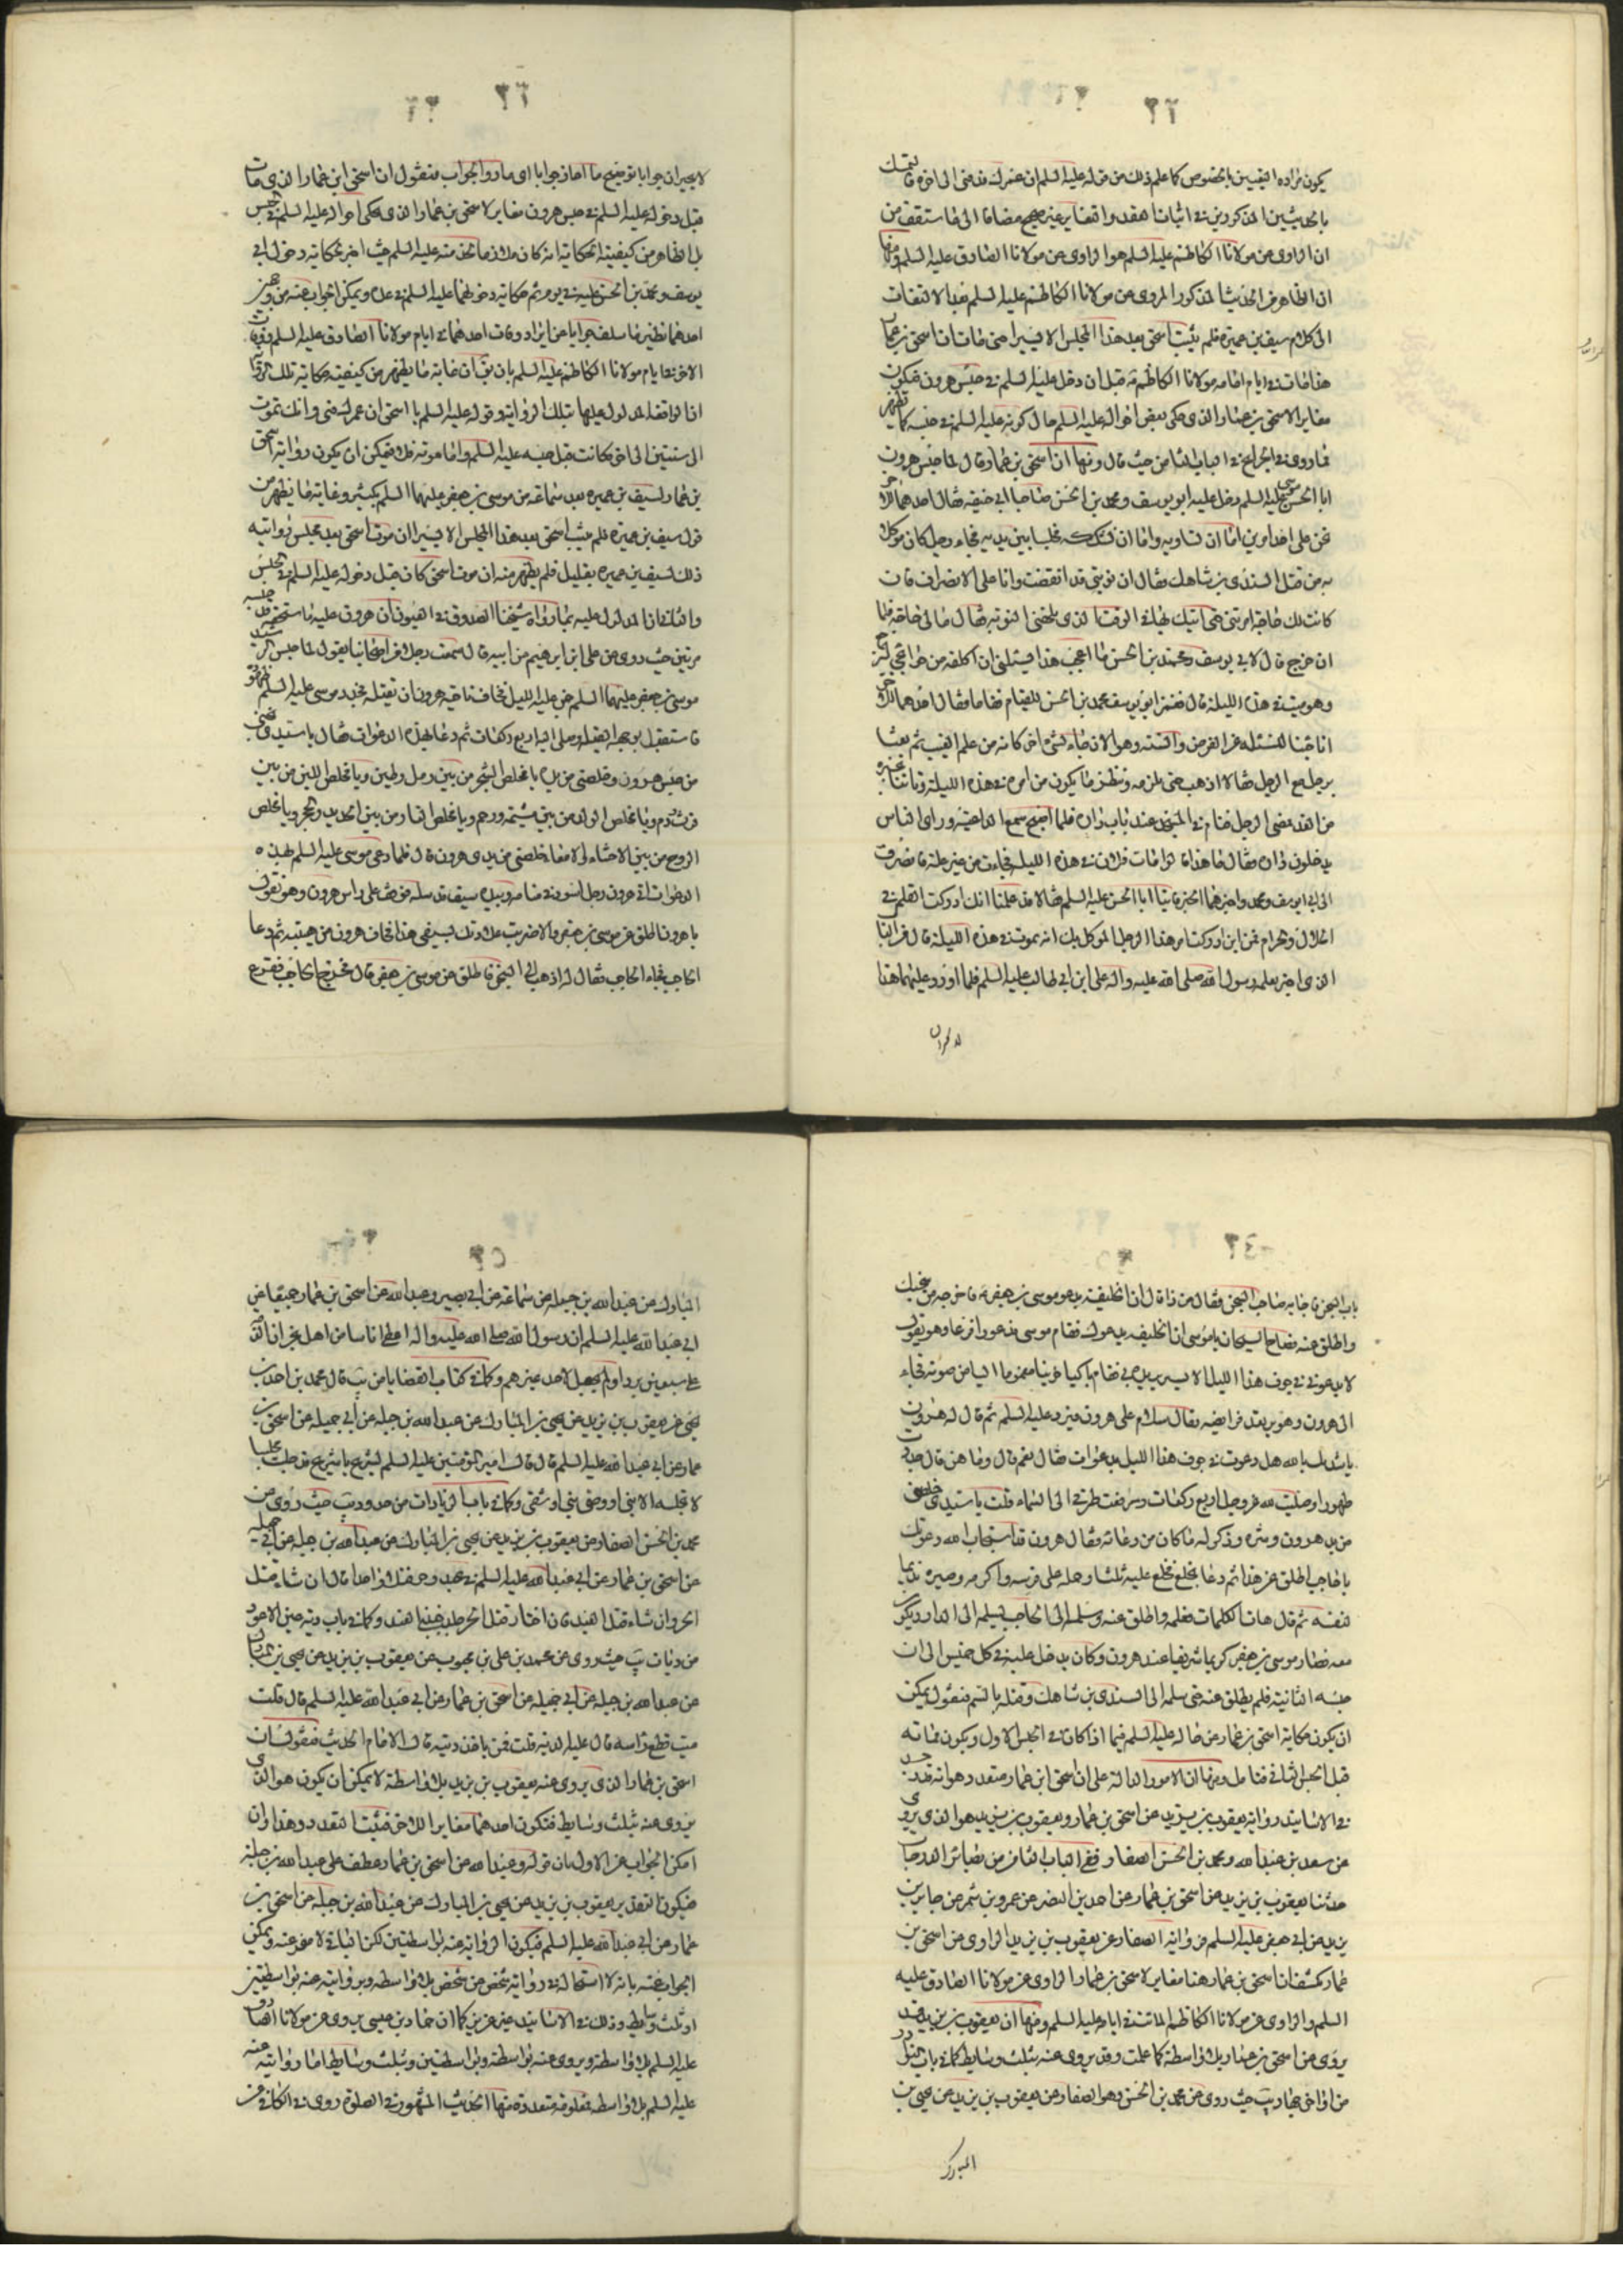 يكون مراده اليقين بالخصوص كما علم ذلك من قوله عليه السلم ان عمرك قد فنى الى اخره فالتمسك
بالحديثين المذكورين في اثبات العقد واتفا غير صحيح مضافا الى ما ستقف من
ان الراوي عن مولانا الكاظم عليه السلم هو الراوي عن مولانا الصادق عليه السلم ومنها
ان الظاهر من الحديث المذكور المروي عن مولانا الكاظم عليه السلم فبالالتفات
الى كلام سيف بن عميرة فلم يلبث اسحق بعد هذا المجلس الا يسيرا حتى مات ان اسحق بن عمار
هذا مات في ايام امامة مولانا الكاظم قبل ان دخل عليه السلم في حبس هرون فيكون
مغايرا لاسحق بن عمار الذي حكى بعض احواله عليه السلم حال كونه عليه السلم في حبسه كما يظهر
مما روى في الخرايج في الباب الثامن حيث قال ومنها ان اسحق بن عمار قال لما حبس هرون
ابا الحسن موسى عليه السلم دخل عليه ابو يوسف ومحمد بن الحسن صاحبا ابي حنيفة فقال احدهما للاخر
نحن على احد امرين اما ان نساويه واما ان نشككه فجلسا بين يديه فجاء رجل كان موكلا
به من قبل السندي بن شاهك فقال ان نوبتي قد انقضت وانا على الانصراف فان
كانت لك حاجة امرتني حتى اتيك بها في الوقت الذي يلحقني النوبة فقال ما لي حاجة فلما
ان خرج قال لابي يوسف ومحمد بن الحسن ما اعجب هذا يسئلني ان اكلفه من حوائجي ليرجع
وهو ميت في هذه الليلة قال فغمز ابو يوسف محمد بن الحسن للقيام فقاما فقال احدهما للاخر
انا جئنا لنسئله عن الفرض والسنة وهو الان جاء بشيء اخر كانه من علم الغيب ثم بعثا
برجل مع الرجل فقالا اذهب حتى تلزمه وتنظر ما يكون من امره في هذه الليلة وتاتينا بخبره
من الغد فمضى الرجل فنام في المسجد عند باب داره فلما اصبح سمع الداعية وراى الناس
يدخلون داره فقال ما هذا قالوا مات فلان في هذه الليلة فجاءة من غير علة فانصرف
الى ابي يوسف ومحمد واخبرهما الخبر فاتيا ابا الحسن عليه السلم فقالا قد علمنا انك ادركت العلم في
الحلال والحرام فمن اين ادركت امر هذا الرجل الموكل بك انه يموت في هذه الليلة قال من الباب
الذي اخبر بعلمه رسول الله صلى الله عليه واله علي ابن ابي طالب عليه السلم فلما اورد عليهما هذا
لا يحيران جوابا توضيح ما احارا جوابا اي ما ردا الجواب فنقول ان اسحق ابن عمار الذي مات
قبل دخوله عليه السلم في حبس هرون مغاير لاسحق بن عمار الذي حكى احواله عليه السلم في الحبس
بل الظاهر من كيفية الحكاية انه كان ملازما لخدمته عليه السلم حيث اخبر بحكاية دخول ابي
يوسف ومحمد بن الحسن عليه في يوم ثم حكاية دخولهما عليه السلم في غده ويمكن الجواب عنه من وجهين
احدهما نظير ما سلف جوابا عن ايراد وفات احدهما في ايام مولانا الصادق عليه السلم ووفات
الاخر في ايام مولانا الكاظم عليه السلم بان يقال ان غاية ما يظهر من كيفية حكاية تلك الرواية
ان الواقعة المدلول عليها بتلك الرواية وقوله عليه السلم يا اسحق ان عمرك فنى وانك تموت
الى سنتين الى اخره كانت قبل حبسه عليه السلم واما موته فلا فيمكن ان يكون رواية اسحق
بن عمار لسيف بن عميره بعد سماعه من موسى بن جعفر عليهما السلم بكثير وغاية ما يظهر من
قول سيف بن عميرة فلم يلبث اسحق بعد هذا المجلس الا يسيرا ان موت اسحق بعد مجلس روايته
ذلك لسيف بن عميره بقليل فلم يظهر منه ان موت اسحق كان قبل دخوله عليه السلم في الحبس
والثاني ان المدلول عليه بما رواه شيخنا الصدوق في العيون ان هرون عليه ما يستحقه حبسه
مرتين حيث روى عن علي ابن ابرهيم عن ابيه قال سمعت رجلا من اصحابنا يقول لما حبس الرشيد
موسى بن جعفر عليهما السلم جن عليه الليل فخاف ناحية هرون ان يقتله فجدد موسى عليه السلم طهوره
فاستقبل بوجهه القبلة وصلى لله اربع ركعات ثم دعا بهذه الدعوات فقال يا سيدي نجني
من حبس هرون وخلصني من يده يا مخلص الشجر من بين رمل وطين ويا مخلص اللبن من بين
فرث ودم ويا مخلص الولد من بين مشيمة ورحم ويا مخلص النار من بين الحديد والحجر ويا مخلص
الروح من بين الاحشاء والامعاء خلصني من يدي هرون قال فلما دعى موسى عليه السلم بهذه
الدعوات اتى هرون رجل اسود في منامه وبيده سيف قد سله فوقف على راس هرون وهو يقول
يا هرون اطلق عن موسى بن جعفر والا ضربت علاوتك بسيفي هذا فخاف هرون من هيبته ثم دعا
الحاجب فجاء الحاجب فقال له اذهب الى السجن فاطلق عن موسى بن جعفر قال فخرج الحاجب فقرع
باب السجن فاجابه صاحب السجن فقال من ذا قال ان الخليفة يدعو موسى بن جعفر فاخرجه من سجنك
واطلق عنه فصاح السجان يا موسى ان الخليفة يدعوك فقام موسى مذعورا فزعا وهو يقول
لا يدعوني في جوف هذا الليل الا لشر يريد بي فقام باكيا حزينا مغموما ايسا من حيوته فجاء
الى هرون وهو يرتعد فرائصه فقال سلام على هرون فرد عليه السلم ثم قال له هرون
ناشدتك بالله هل دعوت في جوف هذا الليل بدعوات فقال نعم قال وما هن قال جددت
طهورا وصليت لله عز وجل اربع ركعات ورفعت طرفي الى السماء وقلت يا سيدي خلصني
من يد هرون وشره وذكر له ما كان من دعائه فقال هرون قد استجاب الله دعوتك
يا حاجب اطلق عن هذا ثم دعا بخلع فخلع عليه ثلثا وحمله على فرسه واكرمه وصيره نديما
لنفسه ثم قال هات الكلمات فعلمه واطلق عنه وسلمه الى الحاجب ليسلمه الى الدار ويكون
معه فصار موسى بن جعفر كريما شريفا عند هرون وكان يدخل عليه في كل خميس الى ان
حبسه الثانية فلم يطلق عنه حتى سلمه الى السندي بن شاهك وقتله بالسم فنقول يمكن
ان يكون حكاية اسحق بن عمار عن حاله عليه السلم فيما اذا كان في الحبس الاول ويكون مماته
قبل الحبس الثاني فتامل ومنها ان الامور الدالة على ان اسحق ابن عمار متعدد هو انه قد وجد
في الاسانيد رواية يعقوب بن يزيد عن اسحق بن عمار ويعقوب بن يزيد هو الذي يروي
عن سعد بن عبد الله ومحمد بن الحسن الصفار ففي الباب الثامن من بصائر الدرجات
حدثنا يعقوب بن يزيد عن اسحق بن عمار عن احمد بن النضر عن عمرو بن شمر عن جابر بن
يزيد عن ابي جعفر عليه السلم فرواية الصفار عن يعقوب بن يزيد الراوي عن اسحق بن
عمار يكشف ان اسحق بن عمار هنا مغاير لاسحق بن عمار الراوي عن مولانا الصادق عليه
السلم والراوي عن مولانا الكاظم المائت في ايامه عليه السلم ومنها ان يعقوب بن يزيد قد
يروي عن اسحق بن عمار بلا واسطة كما علمت وقد يروي عنه بثلث وسايط كما في باب النوادر
من اواخر جهاد يب حيث روى عن محمد بن الحسن وهو الصفار عن يعقوب بن يزيد عن يحيى بن
المبارك
المبارك عن عبد الله بن جبله عن سماعة عن ابي بصير وعبد الله عن اسحق بن عمار جميعا عن
ابي عبد الله عليه السلم ان رسول الله صلى الله عليه واله اعطى اناسا من اهل نجران الذمة
على سبعين بردا ولم يجعل لاحد غيرهم وكما في كتاب القضايا من يب قال محمد بن احمد بن
يحيى عن يعقوب بن يزيد عن يحيى بن المبارك عن عبد الله بن جبله عن ابي جميله عن اسحق بن
عمار عن ابي عبد الله عليه السلم قال قال امير المؤمنين عليه السلم لشريح يا شريح قد جلست مجلسا
لا يجلسه الا نبي او وصي نبي او شقي وكما في باب الزيادات من حدود يب حيث روى عن
محمد بن الحسن الصفار عن يعقوب بن يزيد عن يحيى بن المبارك عن عبد الله بن جبله عن ابي جميله
عن اسحق بن عمار عن ابي عبد الله عليه السلم في عبد وحر قتلا واحدا قال ان شاء قتل
الحر وان شاء قتل العبد فان اختار قتل الحر جلد جنبي العبد وكما في باب دية عين الاعور
من ديات يب حيث روى عن محمد بن علي بن محبوب عن يعقوب بن يزيد عن يحيى بن المبارك
عن عبد الله بن جبله عن ابي جميله عن اسحق بن عمار عن ابي عبد الله عليه السلم قال قلت
ميت قطع راسه قال عليه الدية قلت فمن ياخذ ديته قال الامام الحديث فنقول ان
اسحق بن عمار الذي يروي عنه يعقوب بن يزيد بلا واسطة لا يمكن ان يكون هو الذي
يروي عنه بثلث وسايط فتكون احدهما مغايرا للاخر فثبت التعدد وهذا وان
امكن الجواب عن الاول بان قوله وعبد الله عن اسحق بن عمار عطف على عبد الله بن جبلة
فيكون التقدير يعقوب بن يزيد عن يحيى بن المبارك عن عبد الله بن جبله عن اسحق بن
عمار عن ابي عبد الله عليه السلم فيكون الرواية عنه بواسطتين لكن الباقي لا مفر عنه ويمكن
الجواب عنه بانه لا استحالة في رواية شخص عن شخص بلا واسطة وبروايته عنه بواسطتين
او ثلث وسايط وذلك في الاسانيد غير عزيز كما ان حماد بن عيسى يروي عن مولانا الصادق
عليه السلم بلا واسطة ويروي عنه بواسطة وبواسطتين وبثلث وسايط اما روايته عنه
عليه السلم بلا واسطة فمعلومة متعددة منها الحديث المشهور في الصلوة روى في الكافي عن